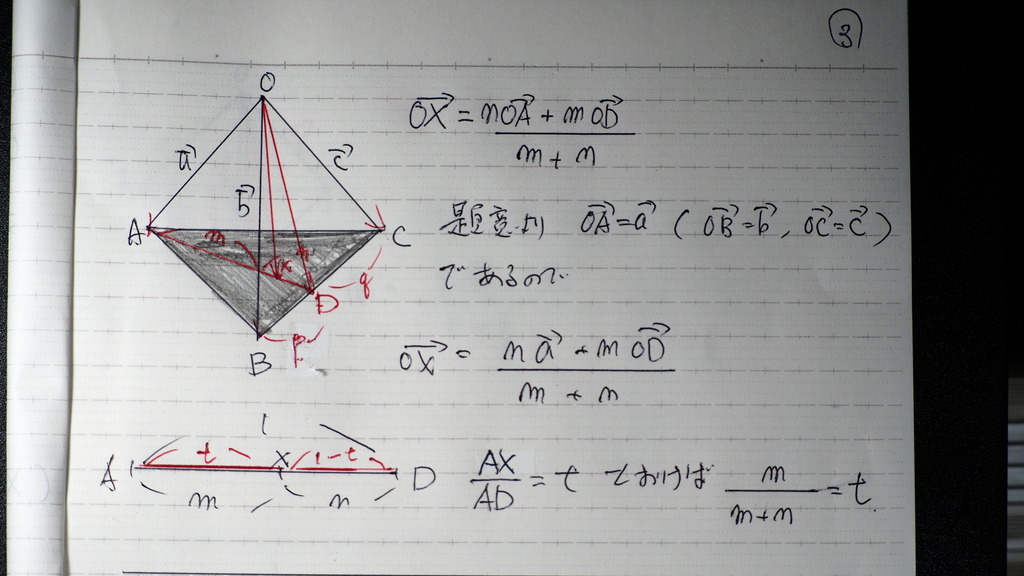 ③
O
a→ c→
b→
A C
m n
X
D q
B p
OX→ = (nOA→ + mOD→) / (m + n)
題意より OA→=a→ (OB→=b→, OC→=c→)
であるので
OX→ = (na→ + mOD→) / (m + n)
1
t X 1-t
A D
m n
AX/AD = t とおけば m/(m+n) = t.